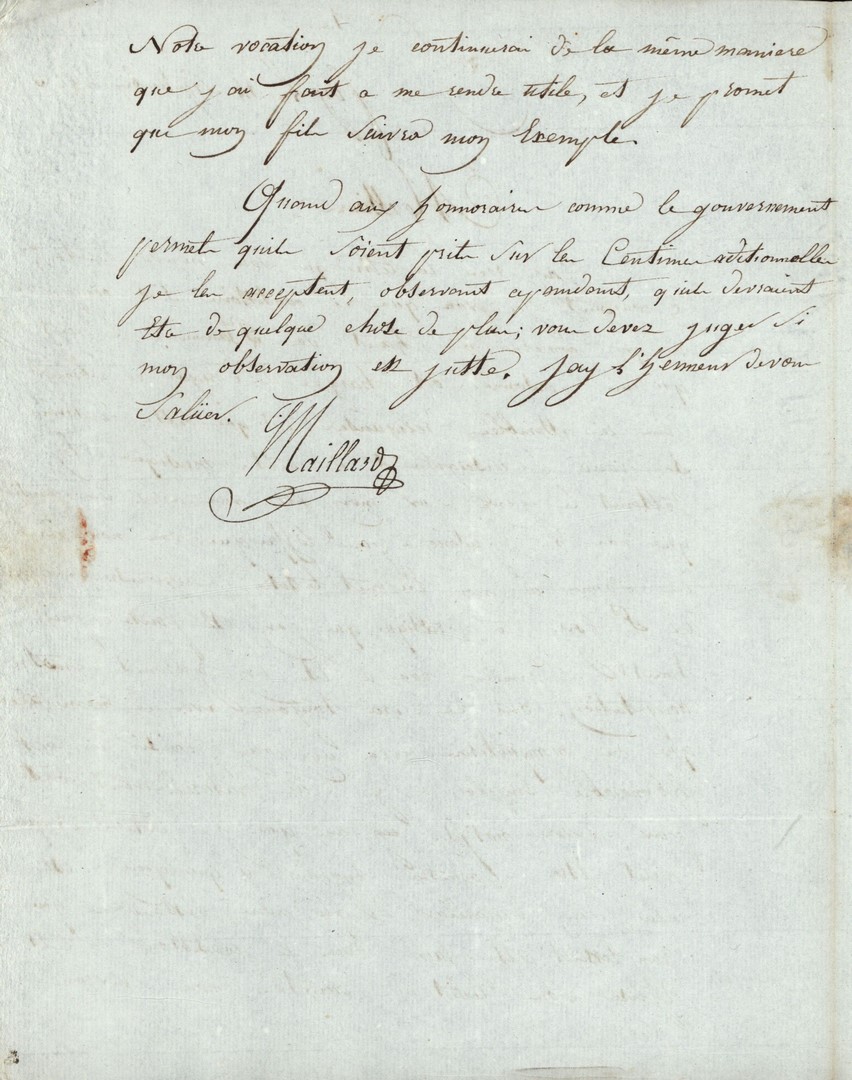 Notre vocation je continuerai de la même maniere
que j'ai fait a me rendre utile, et je promet
que mon fils suivra mon Exemple.
Quand aux honnoraires comme le gouvernement
permet quils soient prits sur les Centimes aditionnelles
je les acceptent, observant cependant, quils devraient
Etre de quelque chose de plus; vous devez juger si
mon observation est juste. Jay l'honneur de vous
Salüer.
Maillard